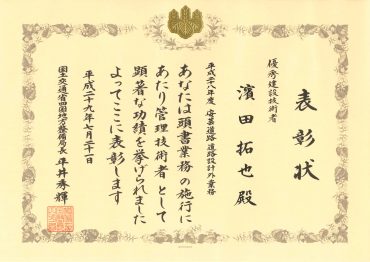 表彰状
優秀建設技術者
濱田拓也殿
平成二十八年度 安芸道路道路設計外業務
あなたは頭書業務の施行に
あたり管理技術者として
顕著な功績を挙げられました
よってここに表彰します
平成二十九年七月二十一日
国土交通省四国地方整備局長 平井秀輝